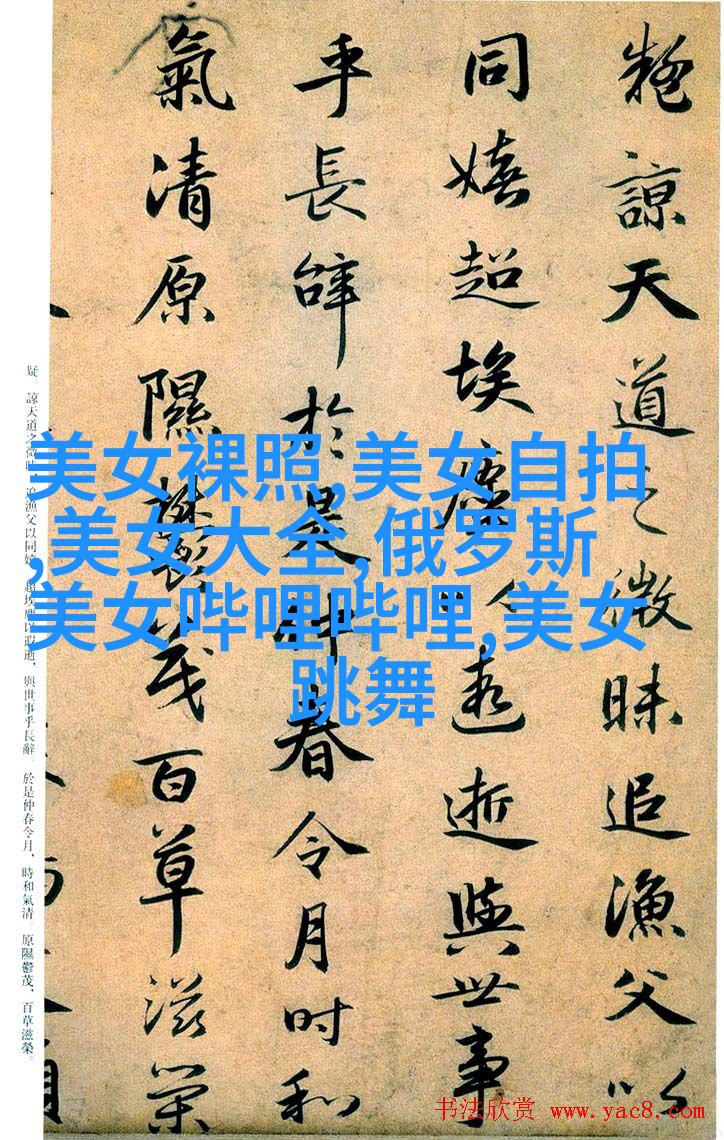 疑諒天道之微昧追漁父以
同嬉超埃塵以遐逝與世事
乎長辭於是仲春令月時和
氣清原隰鬱茂百草滋榮
疑。諒天道之微昧,追漁父以同嬉。超埃塵以遐逝,與世事乎長辭。於是仲春令月,時和氣清。原隰鬱茂,百草滋榮。
美女裸照,美女自拍
,美女大全,俄罗斯
美女哔哩哔哩,美女
跳舞
书法欣赏 www.yac8.com